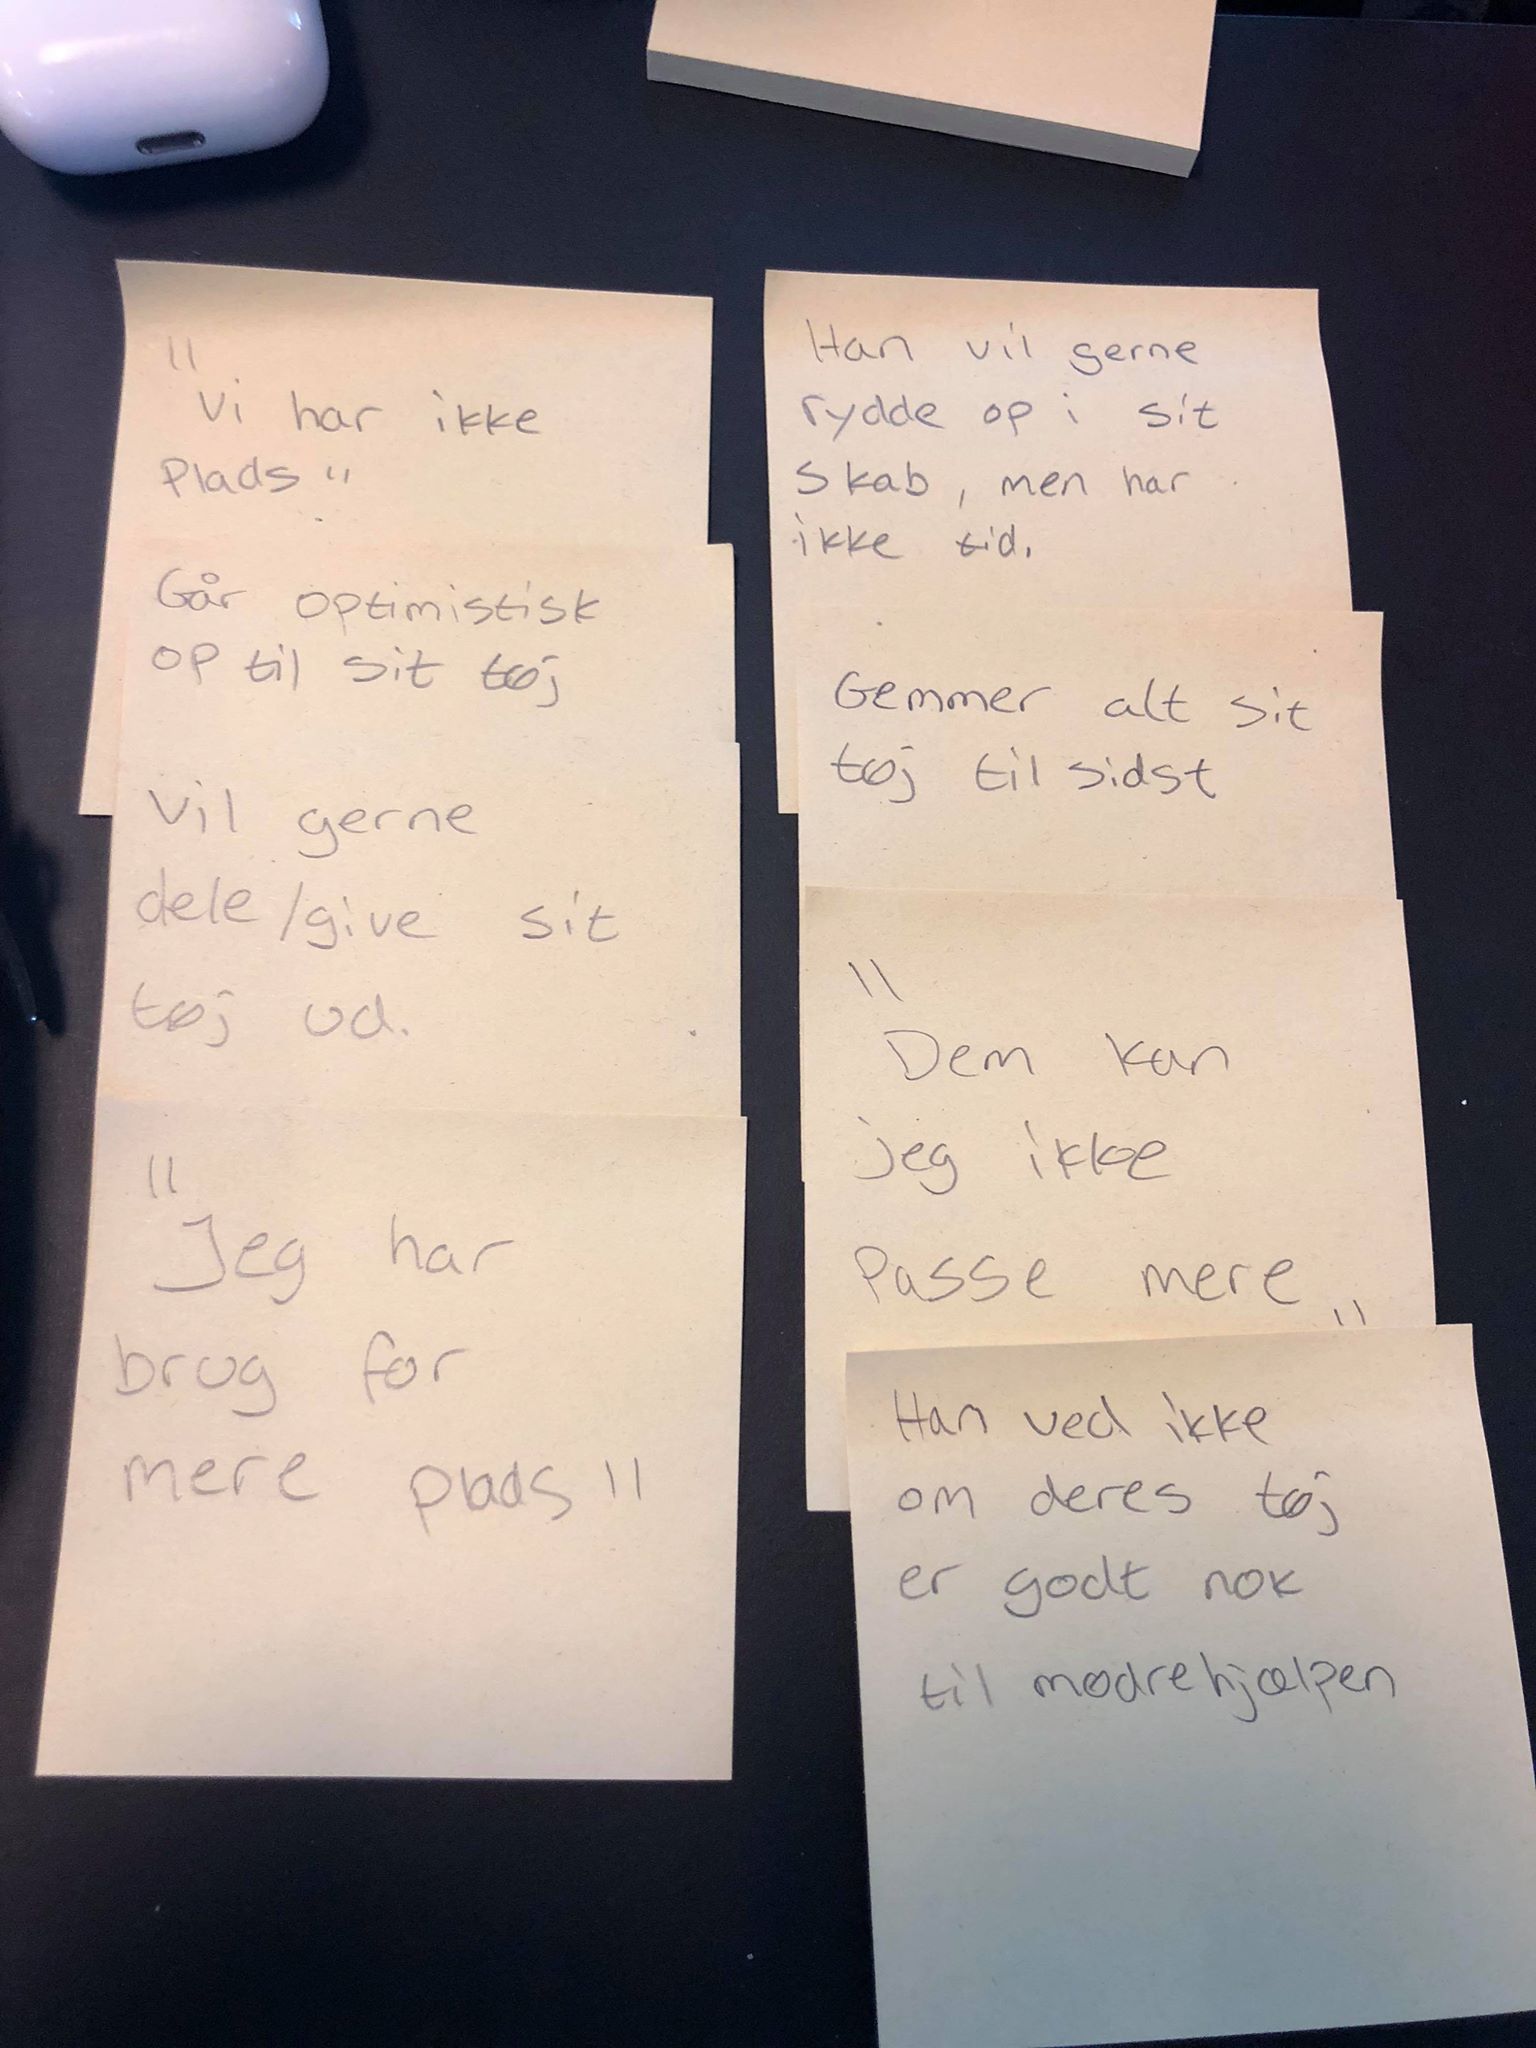 "Vi har ikke
Plads"
Går optimistisk
op til sit tøj
Vil gerne
dele/give sit
tøj ud.
"Jeg har
brug for
mere plads"
Han vil gerne
rydde op i sit
skab, men har
ikke tid.
Gemmer alt sit
tøj til sidst
"Dem kan
jeg ikke
Passe mere"
Han ved ikke
om deres tøj
er godt nok
til mødrehjælpen